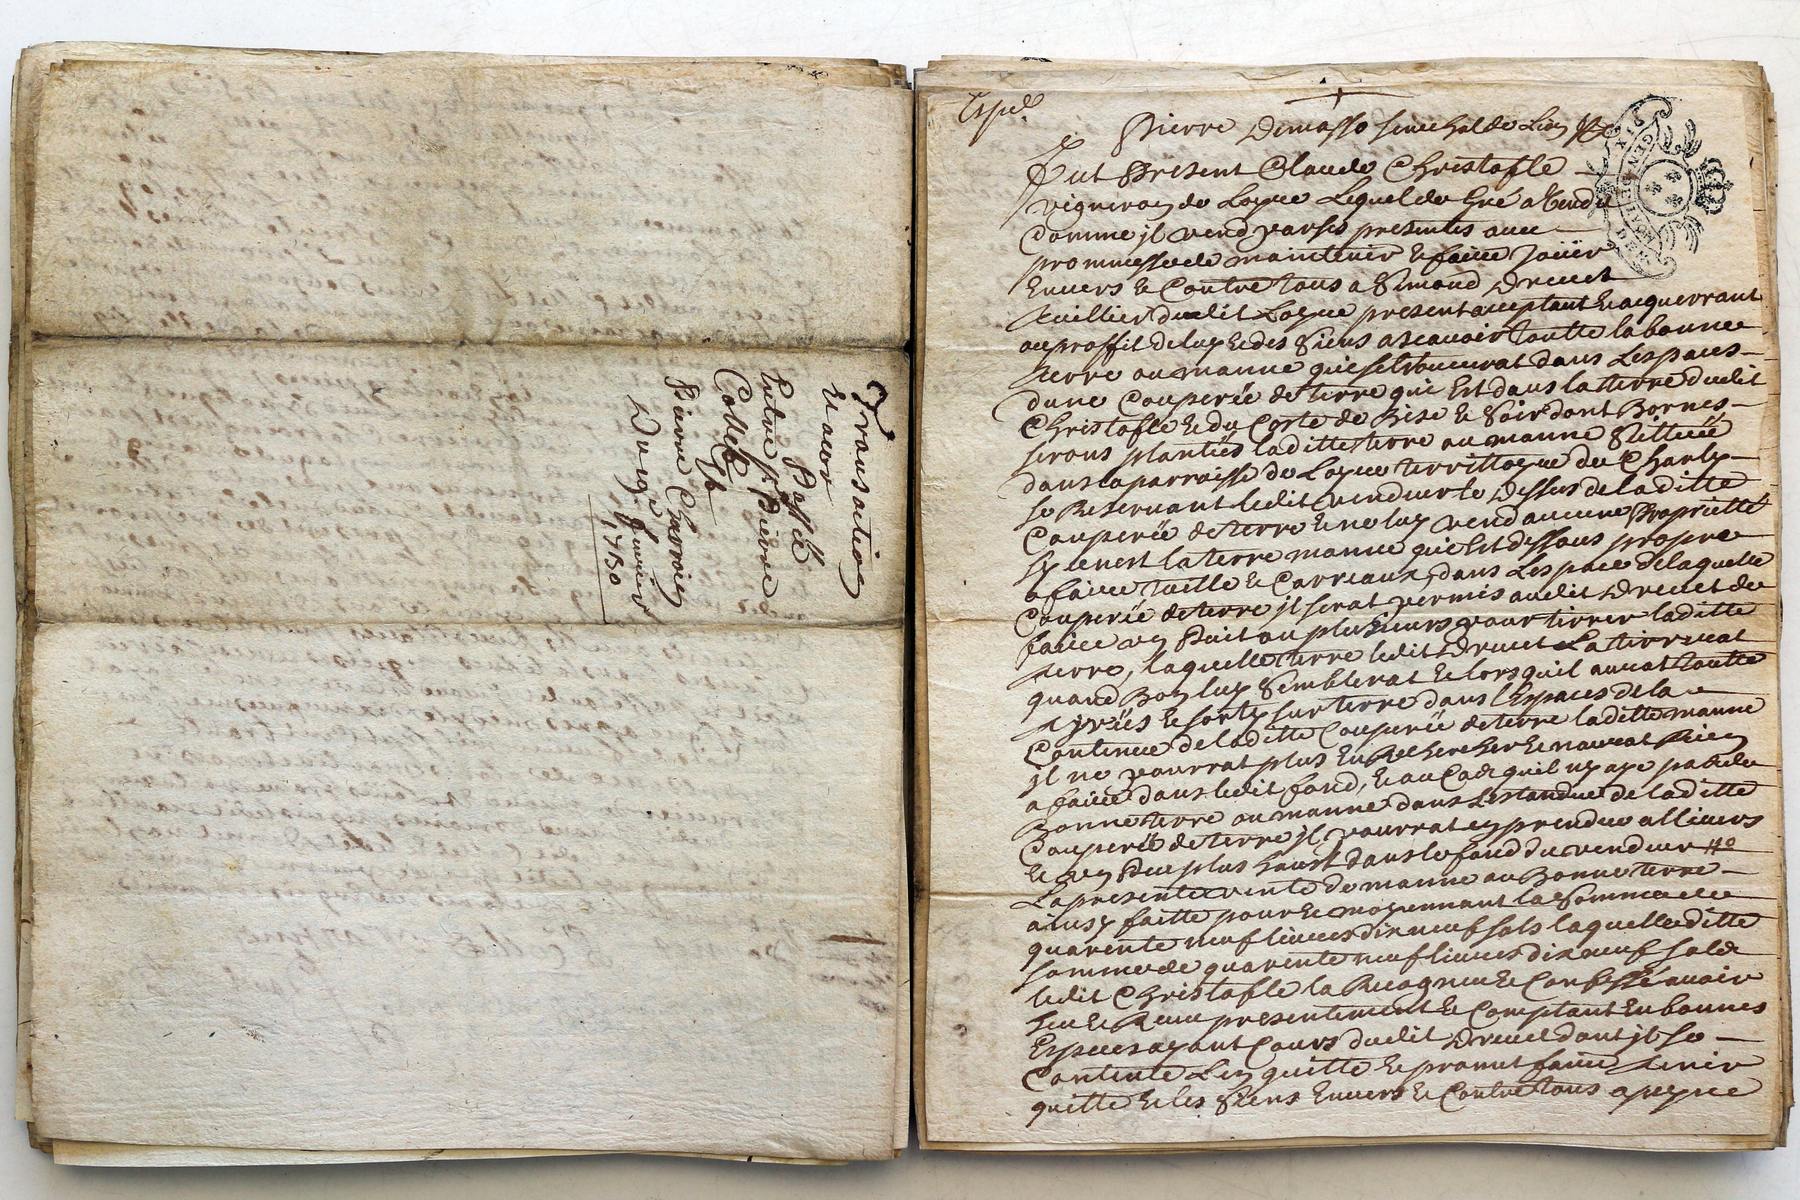 Transaction
Et acor passée
Entre Sr Pierre
Collet Et
Pierre Charvin
Du 9e Janvier
1750
Expéd.
Pierre Demasso senechal de Lion
Fut Present Claude Christofle
vigneron de Loyre Lequel de Gré a Vendu
Comme jl vend par ses presentes avec
prommesse de maintenir Et faire Joüir
Envers Et Contre tous a Simond Drevet
tuillier dudit Loyre present acceptant Et acquerrant
au proffit de luy Et des Siens a scavoir toutte la bonne
terre ou manne qui se trouverat dans Lespaces
dune Couperée de terre qui Est dans la terre dudit
Christofle Et du Coste de Bise Et Soir dont Bornes
serons plantées laditte terre ou manne Sittuée
dans la parroisse de Loyre territtoyre de Charly
se Reservant ledit vendeur le Dessus de laditte
Couperée de terre Et ne luy vend aucune Proprietté
sy ce nest la terre manne qui Est dessous propre
a faire tuille Et Carreaux, dans Lespace de laquelle
Couperée de terre jl serat permis audit Drevet de
faire un Puit ou plusieurs pour tirrer laditte
terre, laquelle terre ledit Drevet La tirrerat
quand Bon luy Semblerat Et lors quil aurat toutte
tyrées Et sorty sur terre dans l'Espaces de la
Contenue de laditte Couperée de terre laditte manne
jl ne pourrat plus En Rechercher Et naurat Rien
a faire dans ledit fond, Et au Cas quil ny aye pas de
Bonne terre ou manne dans Lestandue de laditte
Couperée de terre jl pourrat en prendre allieurs
Et un peu plus haust dans le fond du vendeur
La presente vente de manne ou Bonne terre
ainsy faitte pour Et moyennant la Somme de
quarente neuf livres dix neuf sols laquelle ditte
somme de quarente neuf livres dix neuf sols
ledit Christofle la Recogneu Et Confessé avoir
heu Et Receu presentement Et Comptant En bonnes
Especes ayant Cours dudit Drevet dont jl se
Contente Len quitte Et promet faire tenir
quitte Et les Siens Envers Et Contre tous a peyne